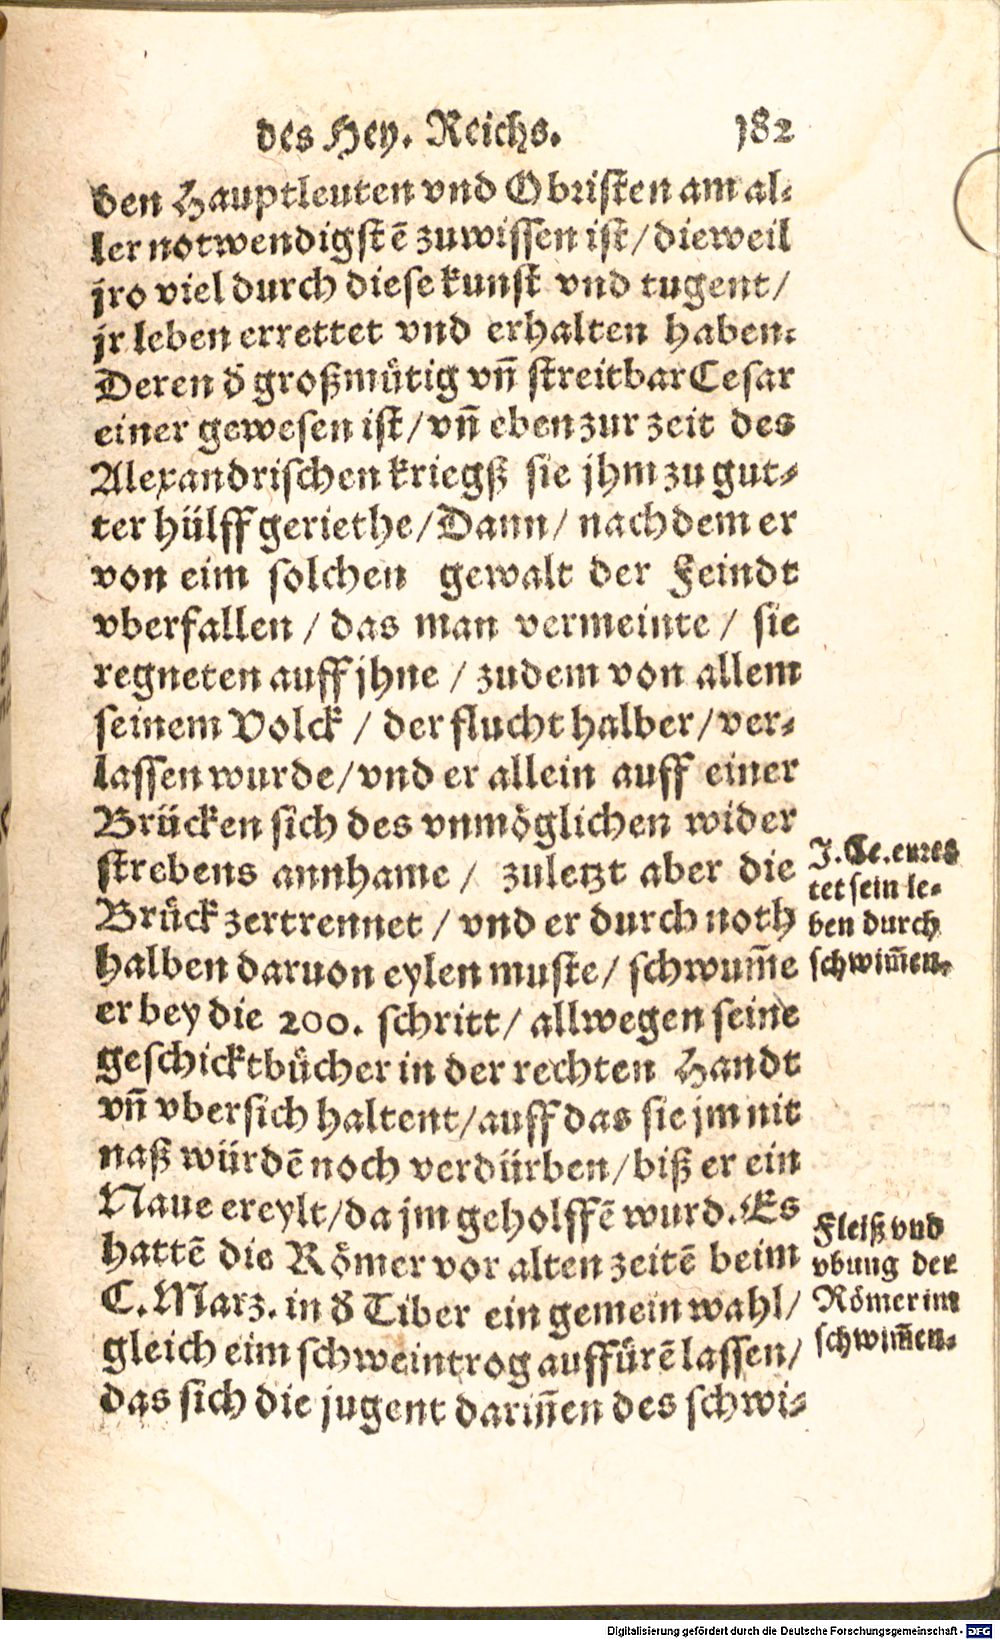 des Hey. Reichs. 182
den Hauptleuten vnd Obristen am al-
ler notwendigstẽ zuwissen ist/dieweil
jro viel durch diese kunst vnd tugent/
jr leben errettet vnd erhalten haben.
Deren d̕ großmütig vñ streitbar Cesar
einer gewesen ist/vñ eben zur zeit des
Alexandrischen kriegß sie jhm zu gut-
ter hülff geriethe/Dann/ nachdem er
von eim solchen gewalt der Feindt
vberfallen / das man vermeinte / sie
regneten auff jhne / zudem von allem
seinem Volck / der flucht halber/ver-
lassen wurde/vnd er allein auff einer
Brücken sich des vnmöglichen wider
strebens annhame / zuletzt aber die
Brück zertrennet / vnd er durch noth
halben daruon eylen muste/ schwum̃e
er bey die 200. schritt/ allwegen seine
geschicktbücher in der rechten Handt
vñ vbersich haltent/auff das sie jm nit
naß würdẽ noch verdürben/biß er ein
Naue ereylt/da jm geholffẽ wurd. Es
hattẽ die Römer vor alten zeitẽ beim
C. Marz. in d̕ Tiber ein gemein wahl/
gleich eim schweintrog auffürẽ lassen/
das sich die jugent dariñen des schwi-
J. Ce. erret
tet sein le-
ben durch
schwim̃en.
Fleiß vnd
vbung der
Römer im
schwim̃en.
Digitalisierung gefördert durch die Deutsche Forschungsgemeinschaft - DFG